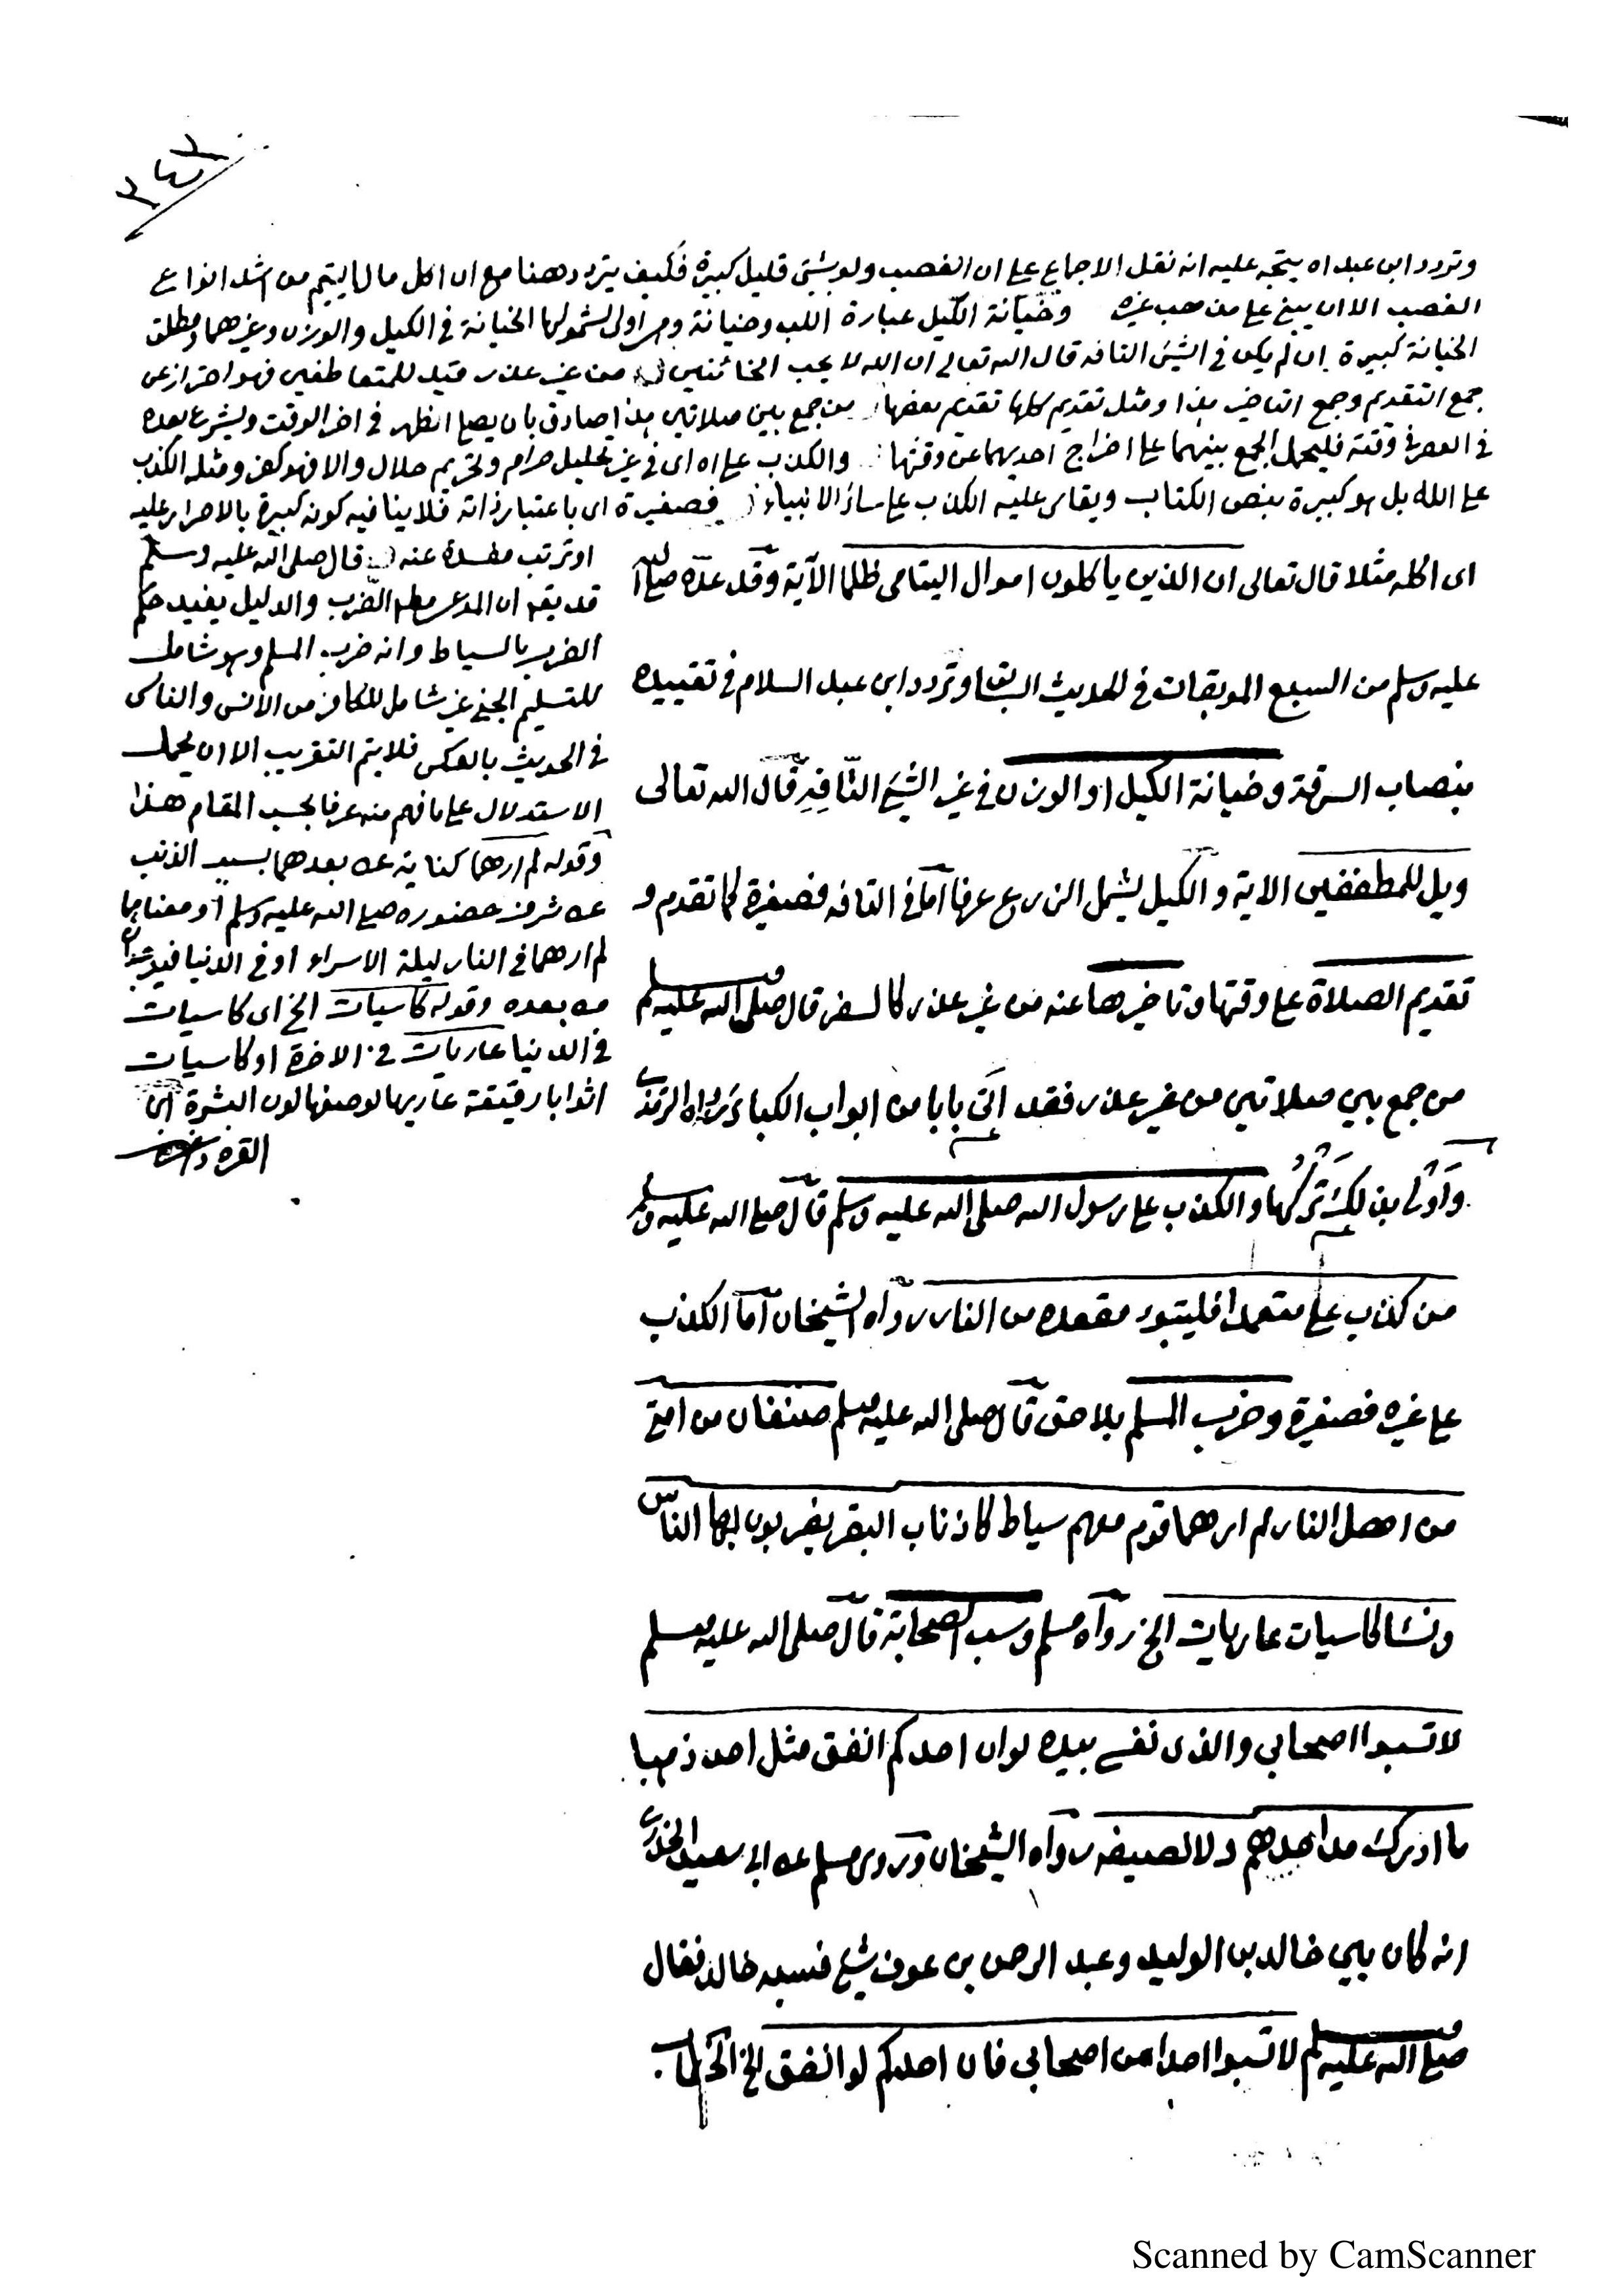 ٣٤٢
وتردد ابن عبد اه يتجه عليه انه نقل الاجماع على ان الغصب ولو بشئ قليل كبيرة فكيف يتردد هنا مع ان اكل مال اليتيم من اشد انواع
الغصب الا ان يبنى على من وخيانة الكيل عبارة اللب وخيانة وهى اولى لشمولها الخيانة فى الكيل والوزن وغيرهما ومطلق
الخيانة كبيرة ان لم يكن فى الشئ التافه قال الله تعالى ان الله لا يحب الخائنين من غير عذر قيد للمتعاطفين فهو احتراز عن
جمع التقديم وجمع التاخير هذا ومثل تقديم كلها تقديم بعضها من جمع بين صلاتين هذا صادق بان يصلى الظهر فى اخر الوقت ويشرع بعده
فى العصر فى وقته فليحمل الجمع بينهما على اخراج احديهما عن وقتها والكذب على اه اى فى غير تحليل حرام وتحريم حلال والا فهو كفر ومثله الكذب
على الله بل هو كبيرة بنص الكتاب ويقاس عليه الكذب على سائر الانبياء فصغيرة اى باعتبار ذاته فلا ينافيه كونه كبيرة بالاصرار عليه
او ترتب مفسدة عنه قال صلى الله عليه وسلم
قد يقه ان المدعى مطلق الضرب والدليل يفيد حكم
الضرب بالسياط وانه ضرب المسلم وهو شامل
للمسلم الجنى غير شامل للكافر من الانس والناس
فى الحديث بالعكس فلا يتم التقريب الا ان يحمل
الاستدلال على ما فهم منه عرفا بحسب المقام هذا
وقوله لم ارهما كناية عن بعدهما بسبب الذنب
عن شرف حضوره صلى الله عليه وسلم او معناها
لم ارهما فى النار ليلة الاسراء او فى الدنيا
من بعده وقوله كاسيات الخ اى كاسيات
فى الدنيا عاريات فى الاخرة او كاسيات
اثوابا رقيقة عاريها لوصفها لون البشرة ابن
القره داغى
اى اكله مثلا قال تعالى ان الذين ياكلون اموال اليتامى ظلما الآية وقد عده صلى الله
عليه وسلم من السبع الموبقات فى الحديث السابق وتردد ابن عبد السلام فى تقييده
بنصاب السرقة وخيانة الكيل او الوزن فى غير الشئ التافه قال الله تعالى
ويل للمطففين الاية والكيل يشمل الذرع عرفا اما فى التافه فصغيرة كما تقدم و
تقديم الصلاة على وقتها وتاخيرها عنه من غير عذر كالسفر قال صلى الله عليه وسلم
من جمع بين صلاتين من غير عذر فقد اتى بابا من ابواب الكبائر رواه الترمذى
واولى بذلك تركها والكذب على رسول الله صلى الله عليه وسلم قال صلى الله عليه وسلم
من كذب على متعمدا فليتبوء مقعده من النار رواه الشيخان اما الكذب
على غيره فصغيرة وضرب المسلم بلا حق قال صلى الله عليه وسلم صنفان من امتى
من اهل النار لم ارهما قوم معهم سياط كاذناب البقر يضربون بها الناس
ونساء كاسيات عاريات الخ رواه مسلم وسب الصحابة قال صلى الله عليه وسلم
لا تسبوا اصحابى والذى نفسى بيده لو ان احدكم انفق مثل احد ذهبا
ما ادرك مد احدهم ولا نصيفه رواه الشيخان وروى مسلم عن ابى سعيد الخدرى
انه كان بين خالد بن الوليد وعبد الرحمن بن عوف شئ فسبه خالد فقال
صلى الله عليه وسلم لا تسبوا احدا من اصحابى فان احدكم لو انفق الخ
Scanned by CamScanner